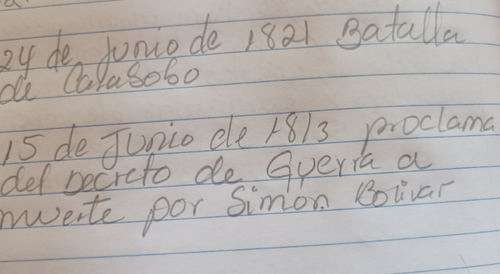 24 de Junio de 1821 Batalla
de Carabobo
15 de Junio de 1813 proclama
del Decreto de Guerra a
muerte por Simon Bolivar